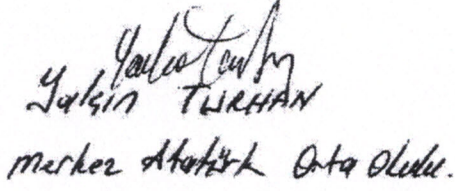 Yalçın TURHAN
Merkez Atatürk Orta Okulu.